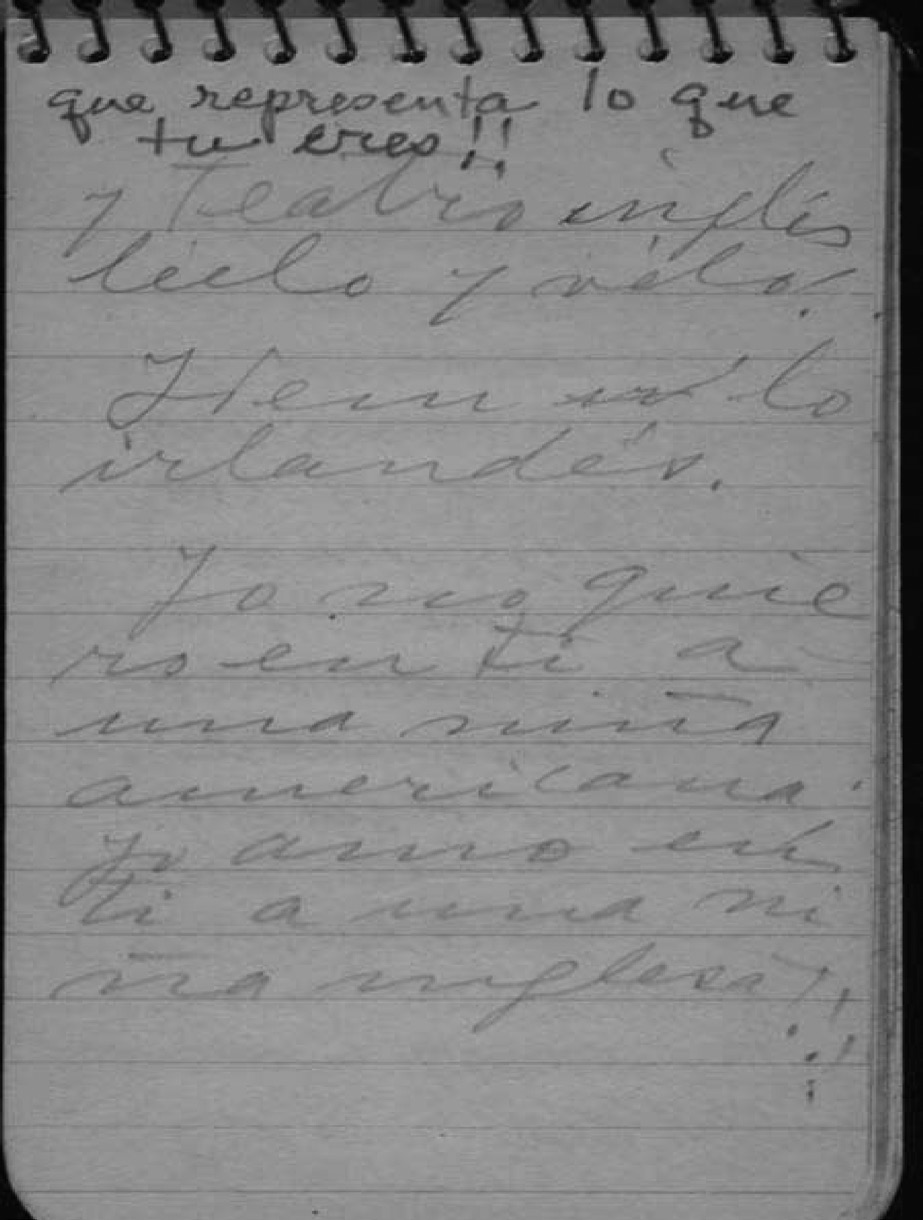 que representa lo que
tu eres!!
y Teatro inglés
léelo y vélo!
Item lo
irlandés.
Yo no quie
ro en ti a
una niña
americana:
yo amo en
ti a una ni
ña inglesa!!!